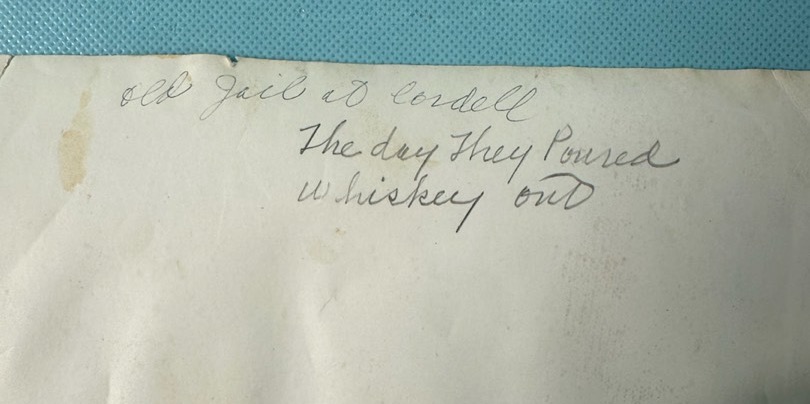 old Jail at Cordell
The day They Poured
whiskey out